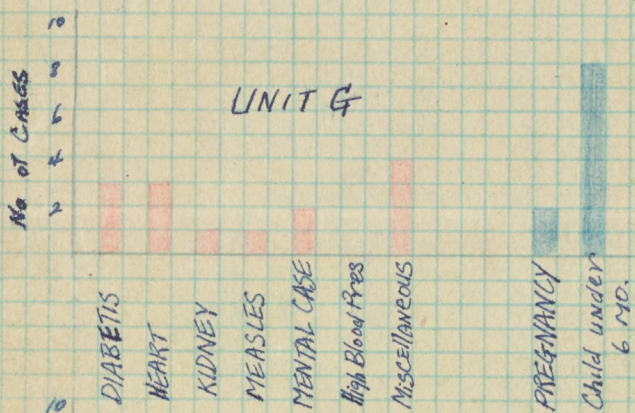 10
8
6
4
2
No of CASES
UNIT G
DIABETIS
HEART
KIDNEY
MEASLES
MENTAL CASE
High Blood Pres
MiscellANEOUS
PREGNANCY
Child under
6 MO.
10